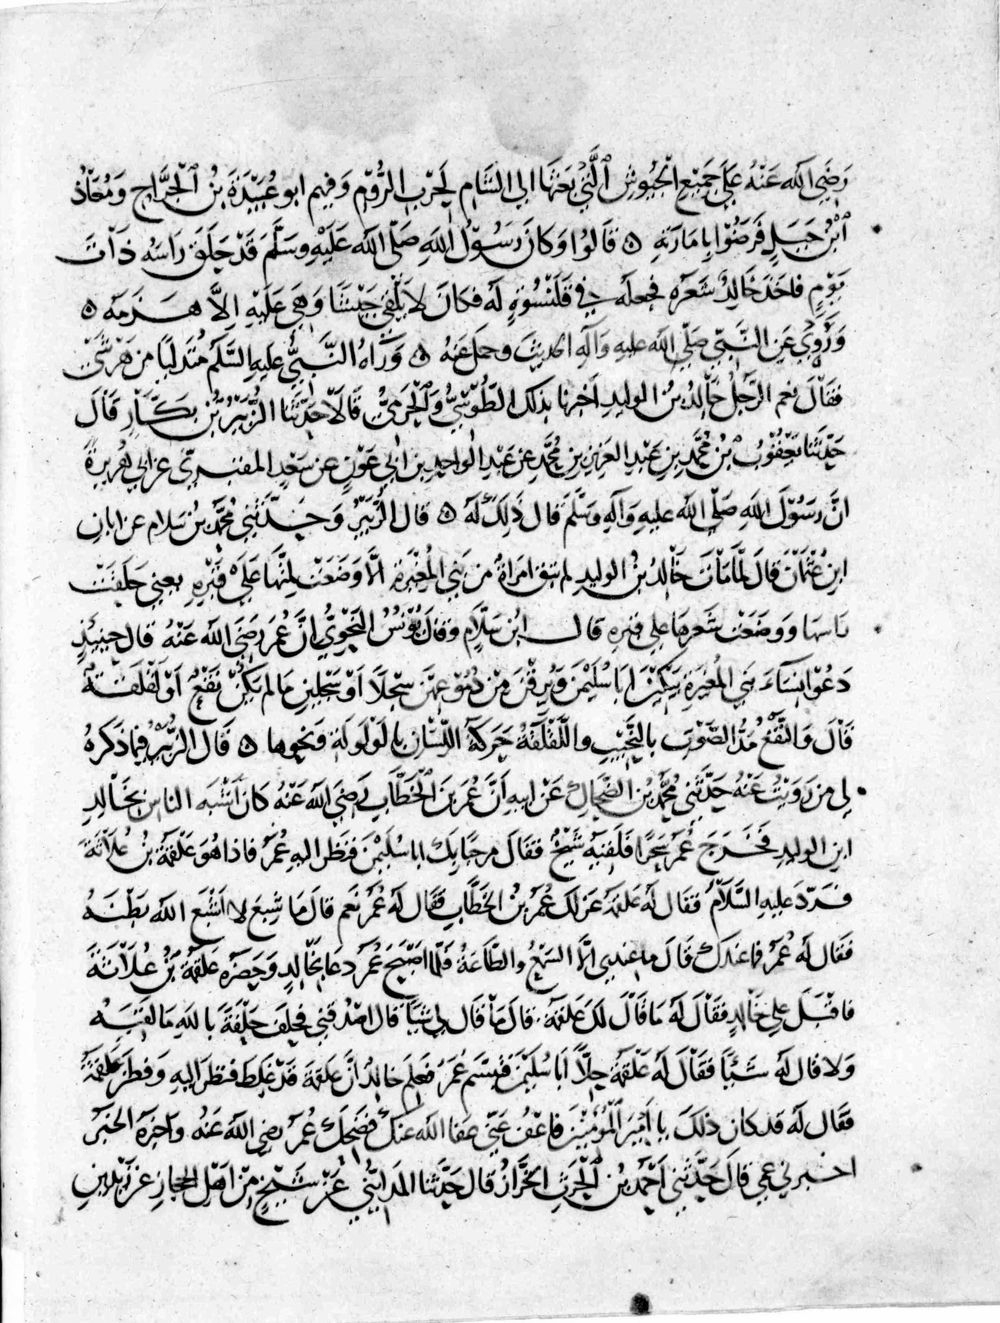 رَضِيَ اللّه عَنْهُ عَلَى جَمِيْعِ الْجُيُوشِ الَّتي بَعَثَهَا الى الشَّامِ لِحَرْبِ الرُّوْمِ وَفيهم ابو عُبَيْدَةَ بْنُ الْجَرَّاحِ وَمُعَاذُ
ابْنُ جَبَلٍ فَرَضُوْا بِامارَتِهِ ٥ قَالوُا وَكانَ رسُوْلُ اللهِ صَلّى اللّه عَلَيْهِ وسَلَّمَ قَدْ حَلَقَ رَاسَه ذَاتَ
يَوْمٍ فاخَذَ خَالِدٌ شَعَرَهُ فجعلَه في قَلَنْسُوَةٍ لَه فكَانَ لا يَلْقَى جَيْشًا وَهيَ عَلَيْهِ الاَّ هَزَمَه ٥
وَرُوِيَ عَنِ النَّبيّ صَلّى اللّه عليهِ وآلِهِ الحديثُ وحملَ عَنهُ ٥ وَرَآهُ النَّبيُّ عليهِ السَّلَم مُتَدَلّيًا من هَرْشَى
فقَالَ نعم الرَّجُلُ خَالِدُ بْنُ الوليدِ اخبرنا بذلك الطُّوْسِيُّ وَالْحَرَمِيُّ قَالا حَدَّثَنا الزُّبَيْرُ بْن بَكَّارٍ قَالَ
حَدَّثَنا يَعْقُوْبُ بْنُ مُحَمَّدِ بنِ عَبْدِ العَزيزِ بنِ مُحَمَّدٍ عن عَبْدِ الواحِدِ بن ابي عَوْنٍ عن سَعِيْدٍ المقبرِيّ عن ابي هُريرة
انَّ رَسُوْلَ اللهِ صَلّى اللّه عليهِ وَآلِهِ وسَلَّمَ قالَ ذَلِكَ لَهُ ٥ قالَ الزُّبَيْرُ وَحَدَّثَني مُحَمَّدُ بن سَلام عن ابانِ
ابن عُثْمَانَ قالَ لمَّا مَاتَ خَالِدُ بْنُ الوليدِ لم تبق امرَاةٌ من بَني المُغِيْرَةِ الاَّ وَضَعَتْ لِمَّتَهَا عَلَى قَبْرِهِ يعني حَلَقَتْ
راسَهَا وَوَضَعَتْ شَعرهَا على قبرِهِ قالَ ابْنُ سَلَّامٍ وقالَ يُوْنُسُ النَّحْوِيُّ انَّ عُمَرَ رضيَ اللّه عَنْهُ قالَ حينئِذٍ
دَعُوْا نِسَاءَ بَني المُغِيْرَةِ يَبْكِيْنَ ابَا سُلَيْمَنَ وَيُرِقْنَ مِنْ دُمُوْعِهِنَّ سَجْلًا اَوْ سَجْلينِ مَا لم يَكُنْ نَقْعٌ اَوْ لَقْلَقَةٌ
قَالَ وَالنَّقْعُ مَدُّ الصَّوْتِ بالنَّحِيْبِ واللَّقْلَقَةُ حَرَكَةُ اللِّسَانِ بالوَلْوَلَةِ ونحوِها ٥ قَالَ الزُّبَيْرُ فيمَا ذَكرهُ
لي من رَوَيْتُ عَنْهُ حَدَّثَني مُحَمَّدُ بْنُ الضَّحَّاكِ عَنْ ابيهِ اَنَّ عُمَرَ بْنَ الْخَطَّابِ رضيَ اللّه عَنْهُ كانَ اَشْبَهَ الناسِ بخَالِدِ
ابنِ الوليدِ فخَرَجَ عُمَرُ سَحَرًا فلَقيَهُ شَيْخٌ فقَالَ مرحَبًا بكَ ابا سُلَيْمَنَ فنَظَرَ اليهِ عُمَرُ فاذا هُوَ عَلْقَمَةُ بْنُ عُلاَثَةَ
فرَدَّ عليهِ السَّلاَمَ فقالَ لَهُ علقمَة عَزَلَكَ عُمَرُ بْنُ الخَطَّابِ فقَالَ لَه عُمَرُ نَعم قالَ مَا شَبِعَ لا اَشْبَعَ اللّه بَطْنَهُ
فقالَ لَهُ عُمَرُ فَمَا عندَكَ قَالَ ما عندي الاَّ السَّمْعُ والطَّاعَةُ فلمَّا اصْبَحَ عُمَرُ دعَا بخَالِدٍ وَحَضَرَهُ عَلقَمَةُ بْنُ عُلاَثَةَ
فاقبَلَ على خَالِدٍ فقَالَ لَهُ مَا قَالَ لكَ عَلقمَةُ، قالَ مَا قَالَ لي شَيْئًا قالَ اصْدُقني فحلَفَ خَالِدٌ باللهِ مَا لقيتُه
ولا قالَ لَهُ شَيْئًا فقَالَ لَهُ عَلْقمَةُ حِلًّا اَبَا سُلَيْمَنَ فتبسَّمَ عُمَرُ فعَلِمَ خَالِدٌ انَّ علقمَة قَدْ غَلِطَ فنظَرَ اليهِ وَفطنَ عَلْقَمَةُ
فقَالَ لَهُ قد كانَ ذلكَ يا أَمِيْرَ الْمُؤْمِنينَ فاعْفُ عَنّي عفَا اللّه عَنْكَ فضَحِكَ عُمَرُ رضي اللّه عَنْهُ واخبَرَهُ الخبَرَ
اخبَرَني عمي قالَ حَدَّثَني اَحْمَدُ بْنُ الْحَرثِ الخَرَّازُ قالَ حَدَّثَنا المَدَائِنيُّ عَنْ شَيْخٍ مِنْ اهْلِ الحِجَازِ عن زيْدِ بنِ